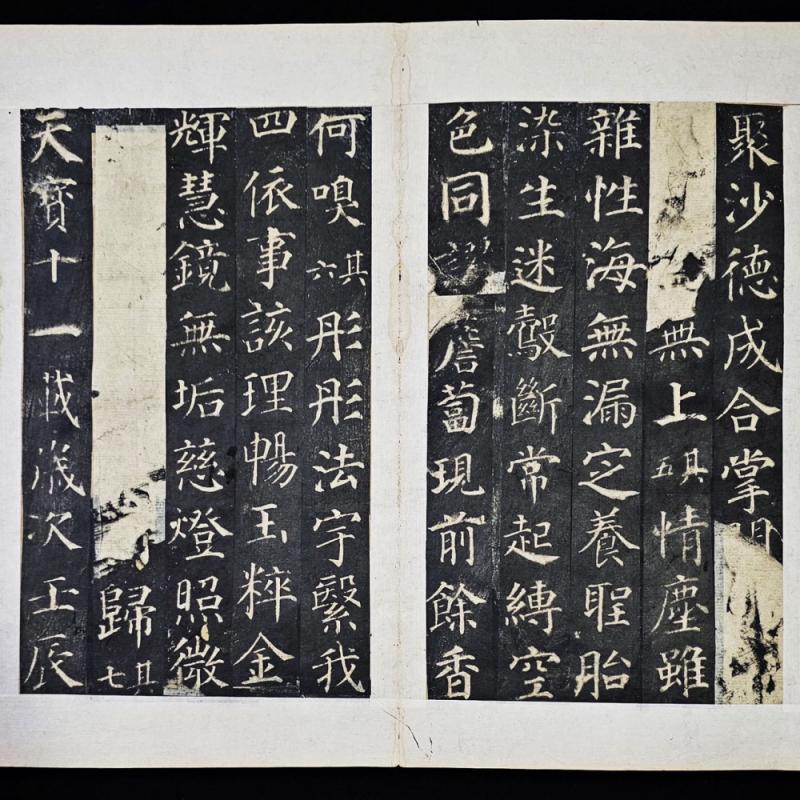 聚沙德成合掌
無上其五情塵雖
雜性海無漏定養聖胎
染生迷斷常起縛空
色同謬薝蔔現前餘香
何嗅其六彤彤法宇繫我
四依事該理暢玉粹金
輝慧鏡無垢慈燈照微
歸其七
天寶十一載歲次壬辰